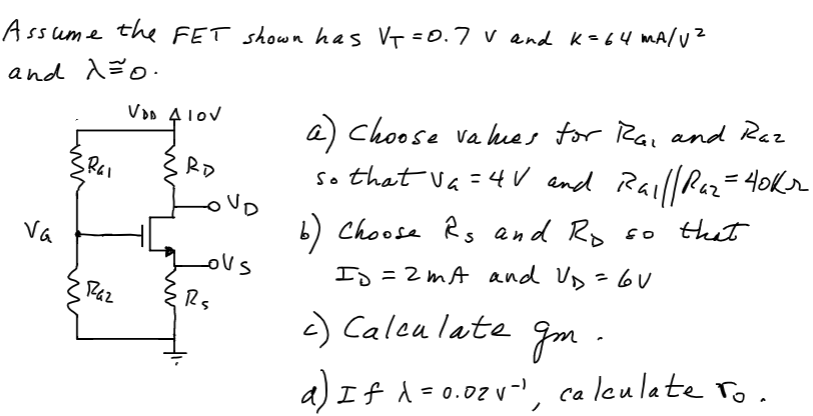 Assume the FET shown has V_T = 0.7 V and K = 64 mA/V²
and λ ≅ 0.
V_DD 10V
R_G1
R_D
V_D
V_G
V_S
R_G2
R_S
a) Choose values for R_G1 and R_G2
so that V_G = 4 V and R_G1//R_G2 = 40KΩ
b) Choose R_S and R_D so that
I_D = 2 mA and V_D = 6V
c) Calculate gm.
d) If λ = 0.02 V⁻¹, calculate r_o.